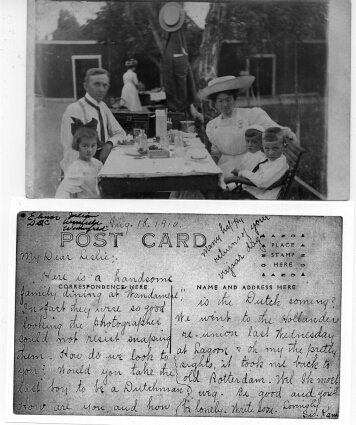 Elinor
Aug. 16, 1910.
POST CARD
Many happy
returns of your
My Dear Leslie:-
PLACE
STAMP
HERE
Here is a handsome
CORRESPONDENCE HERE
NAME AND ADDRESS HERE
family dining at
In fact they were so good
looking the photographer
could not resist snaping
them. How do we look to
you? Would you take the
last boy to be a Dutchman?
How are you and how
is the Dutch coming?
We went to the Hollanders
re-union last Wednesday
at Lagoon & oh my the pretty
sights, it took me back to
old Rotterdam.
Be good and you'll
be lonely. Write soon. Lovingly